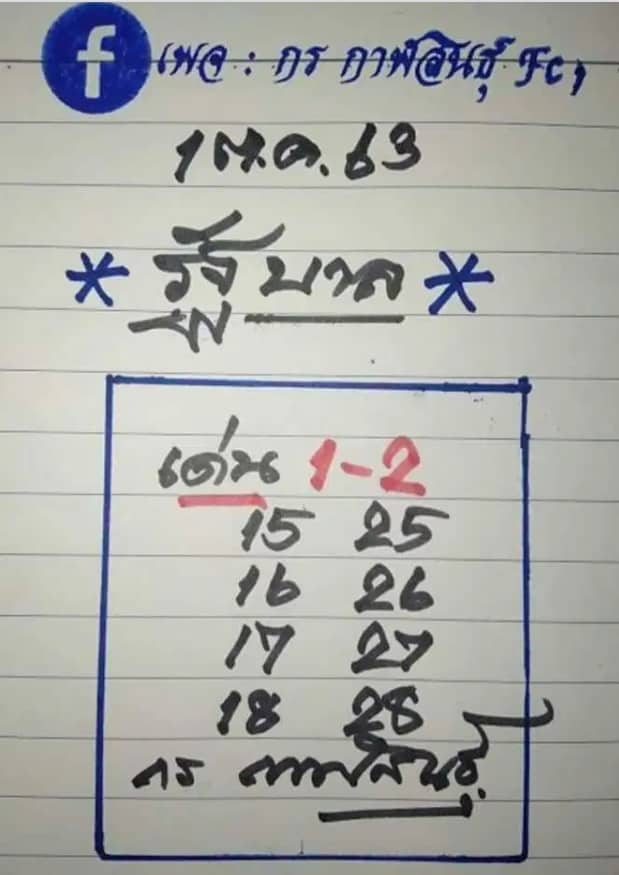 f เพจ : กร กาฬสินธุ์ Fc,
1 ต.ค. 63
* รัฐบาล *
เด่น 1-2
15 25
16 26
17 27
18 28
กร กาฬสินธุ์